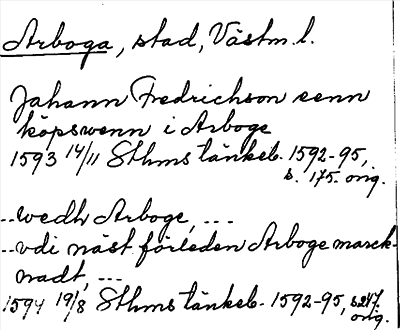 Arboga, stad, Västm. l.
Jahann Fredrichson eenn
köpswenn i Arboge
1593 14/11 Sthms tänkeb. 1592-95,
s. 175. orig.
...wedh Arboge, ...
...vdi näst förleden Arboge marck-
nadt, ...
1594 19/8 Sthms tänkeb. 1592-95, s. 247.
orig.